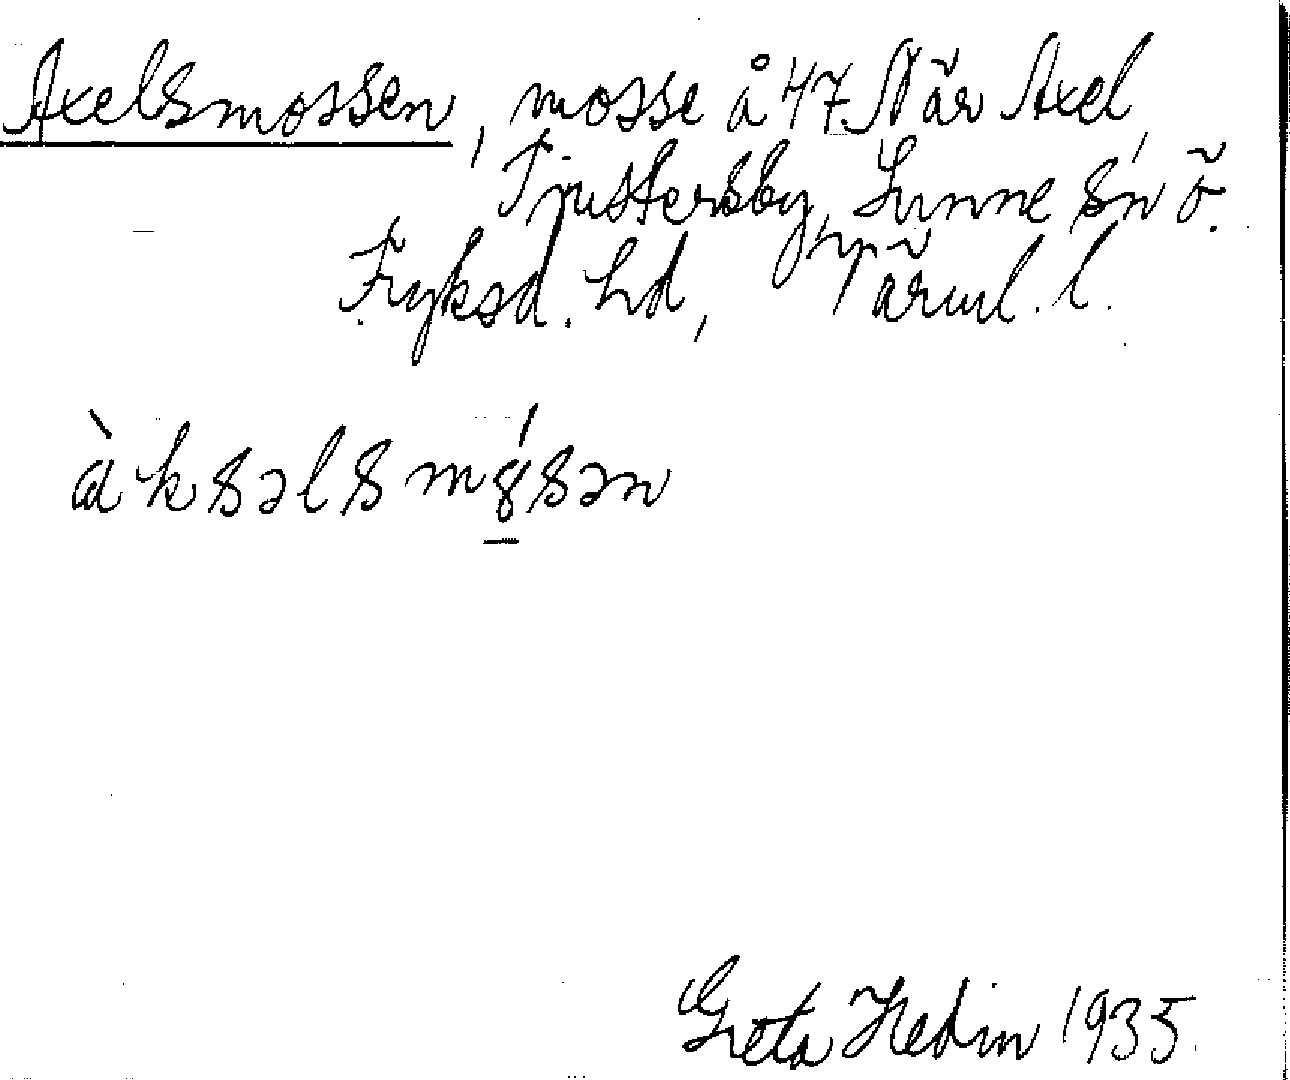 Axelsmossen, mosse å 47 När Axel,
Tjustersby, Sunne sn ö.
Fryksd. hd, Värml. l.
àksəlsmǫ́sən
Greta Hedin 1935.